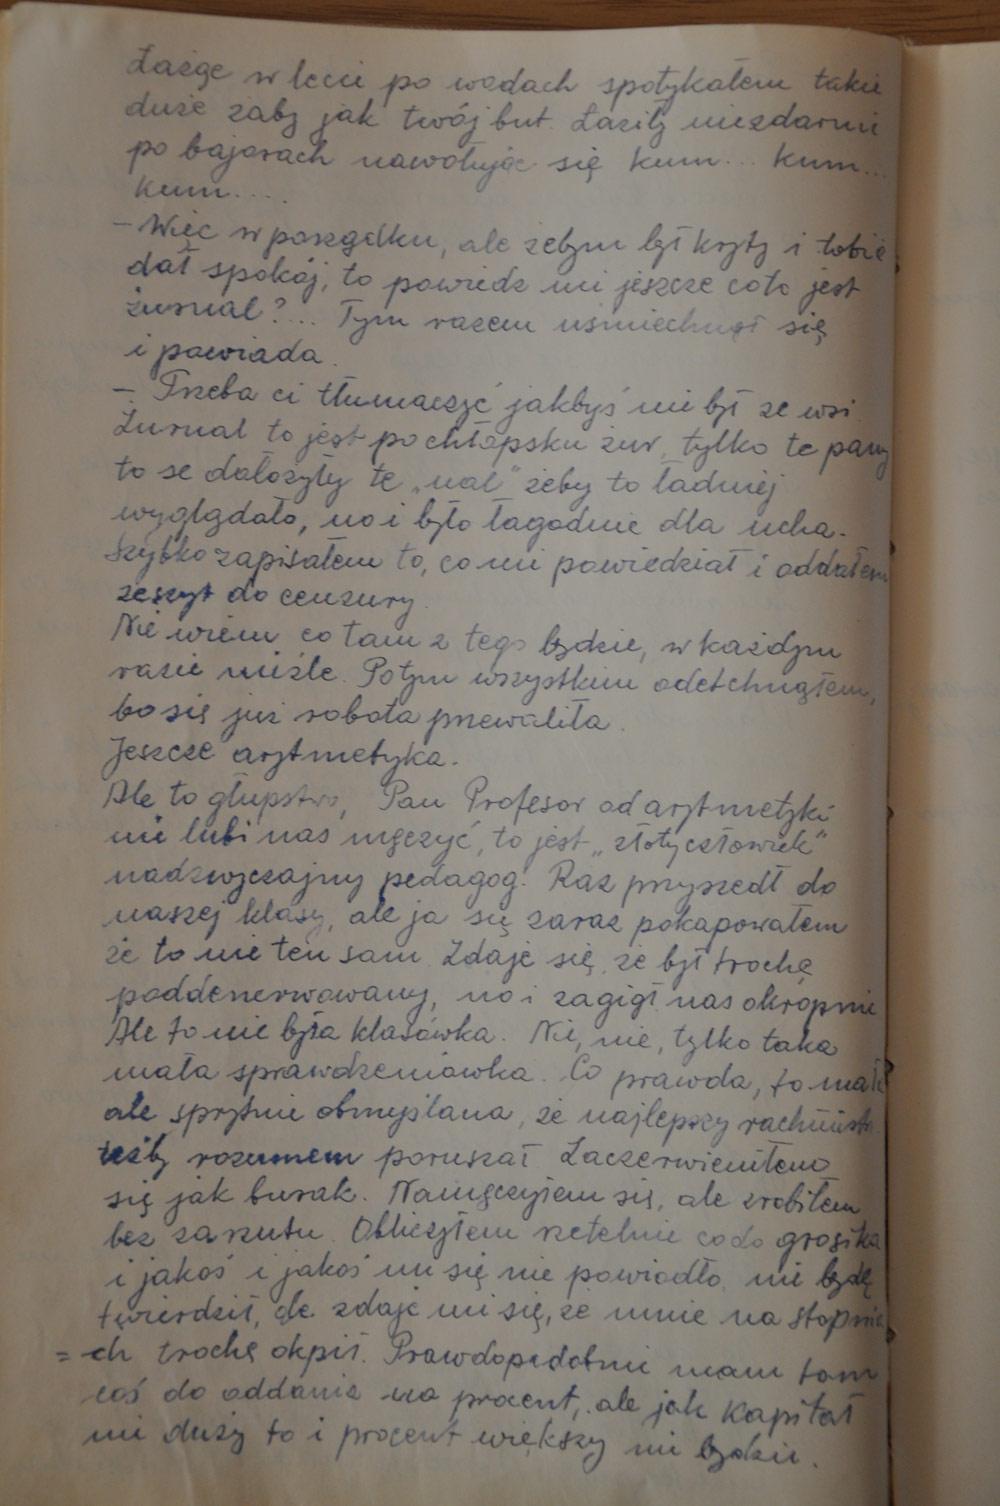 Łażąc w lecie po wodach spotykałem takie
duże żaby jak twój but. Łaziły niezdarnie
po bajorach nawołując się kum... kum...
kum....
- Więc w porządku, ale żebym był kryty i tobie
dał spokój, to powiedz mi jeszcze co to jest
żurnal?... Tym razem uśmiechnął się
i powiada.
- Trzeba ci tłumaczyć jakbyś nie był ze wsi.
Żurnal to jest po chłopsku żur, tylko te pany
to se dołożyły te „nal" żeby to ładniej
wyglądało, no i było łagodnie dla ucha.
Szybko zapisałem to, co mi powiedział i oddałem
zeszyt do cenzury.
Nie wiem co tam z tego będzie, w każdym
razie nieźle. Po tym wszystkim odetchnąłem,
bo się już robota przewaliła.
Jeszcze arytmetyka.
Ale to głupstwo, Pan Profesor od arytmetyki
nie lubi nas męczyć, to jest „złoty człowiek"
nadzwyczajny pedagog. Raz przyszedł do
naszej klasy, ale ja się zaraz pokapowałem
że to nie ten sam. Zdaje się, że był trochę
poddenerwowany, no i zagiął nas okrópnie
Ale to nie była klasówka. Nie, nie, tylko taka
mała sprawdzeniówka. Co prawda, to mała
ale sprytnie obmyślana, że najlepszy rachmistrz
też by rozumem poruszał. Zaczerwieniłem
się jak burak. Namęczyłem się, ale zrobiłem
bez zarzutu. Obliczyłem rzetelnie co do grosika
i jakoś i jakoś mi się nie powiodło, nie będę
twierdził, ale zdaje mi się, że mnie na stopnia
= ch trochę okpił. Prawdopodobnie mam tam
coś do oddania na procent, ale jak kapitał
nie duży to i procent większy nie będzie.